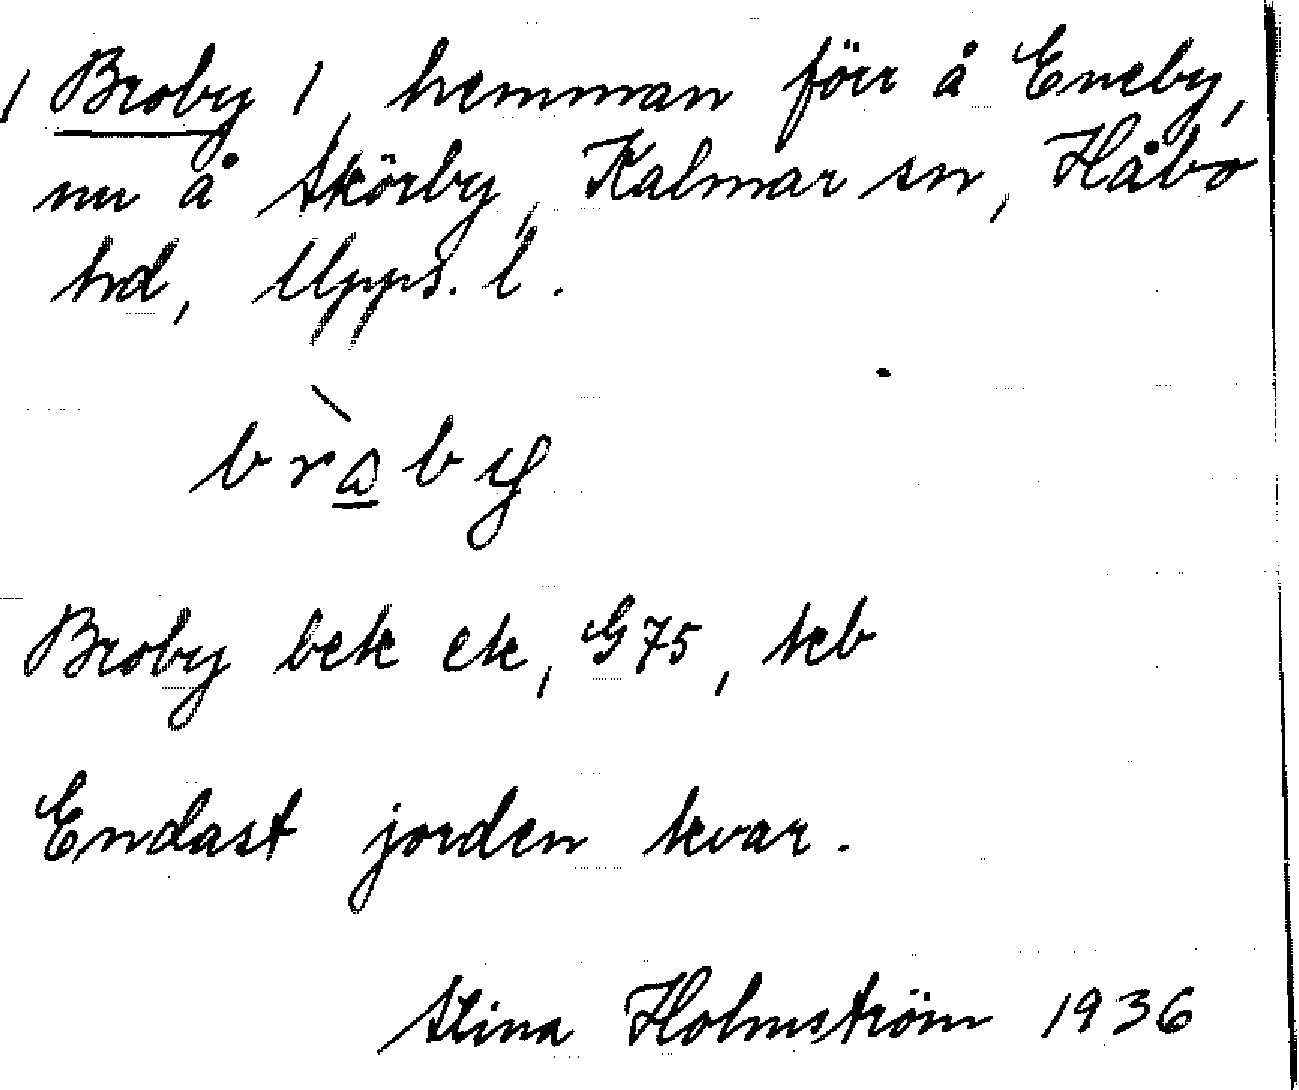 1 Broby 1, hemman förr å Eneby,
nu å Skörby, Kalmar sn, Håbo
hd, Upps. l.
bràby
Broby bek ek, G75, keb
Endast jorden kvar.
Stina Holmström 1936